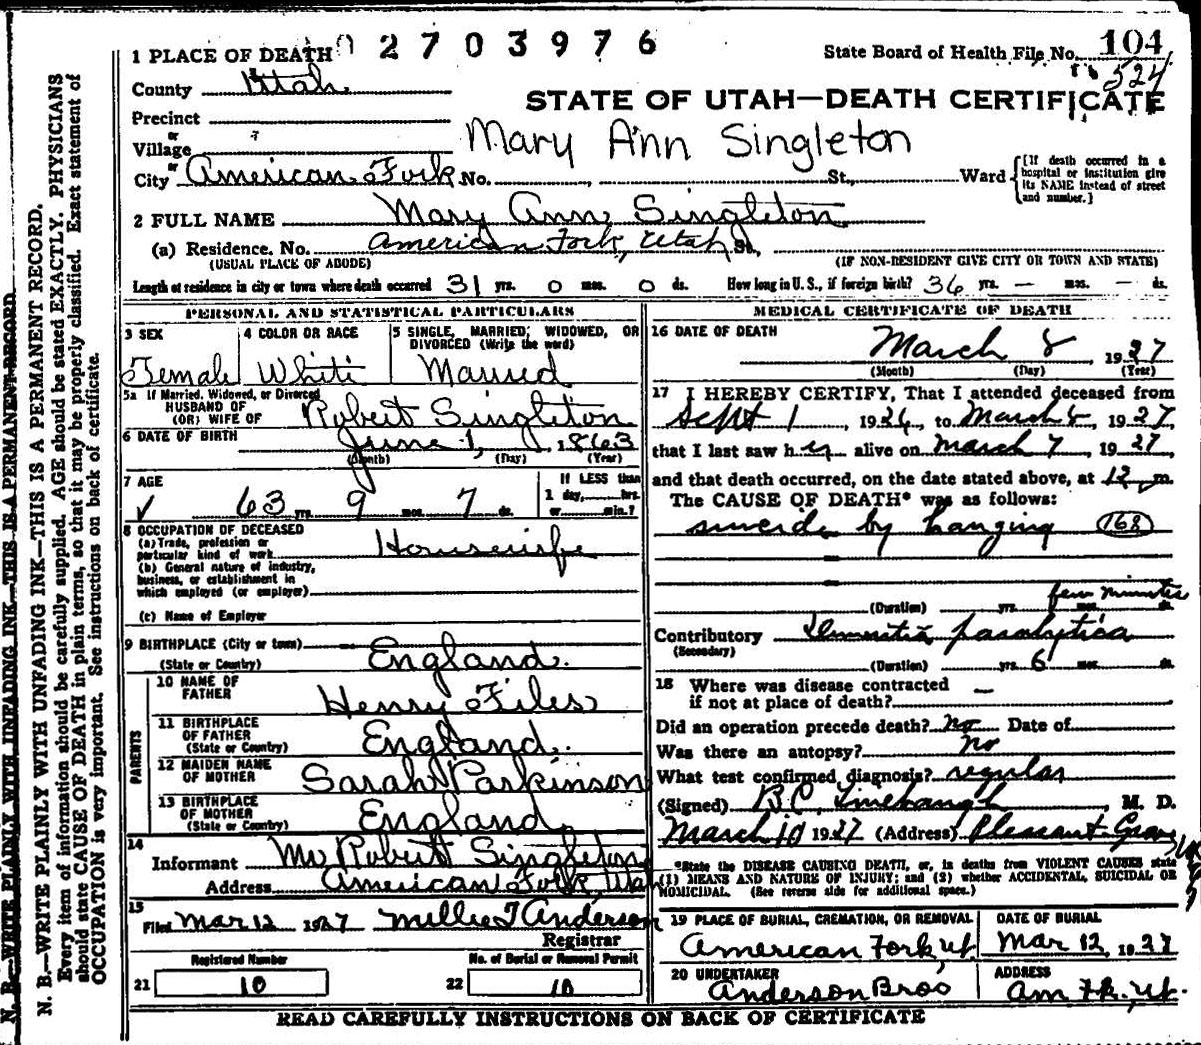 1 PLACE OF DEATH 02703976 State Board of Health File No. 104
524
County Utah
STATE OF UTAH—DEATH CERTIFICATE
Precinct
or
Village
Mary Ann Singleton
or
City American Fork No. , St., Ward {[If death occurred in a hospital or institution give its NAME instead of street and number.]
2 FULL NAME Mary Ann Singleton
(a) Residence. No. American Fork, Utah St.
(USUAL PLACE OF ABODE) (IF NON-RESIDENT GIVE CITY OR TOWN AND STATE)
Length of residence in city or town where death occurred 31 yrs. 0 mos. 0 ds. How long in U. S., if foreign birth? 36 yrs. — mos. — ds.
PERSONAL AND STATISTICAL PARTICULARS
3 SEX
Female
4 COLOR OR RACE
White
5 SINGLE, MARRIED, WIDOWED, OR
DIVORCED (Write the word)
Married
5a If Married, Widowed, or Divorced
HUSBAND OF
(OR) WIFE OF Robert Singleton
6 DATE OF BIRTH June 1, 1863
(Month) (Day) (Year)
7 AGE
63 yrs. 9 mos. 7 ds.
If LESS than
1 day,.....hrs.
or.....min.?
8 OCCUPATION OF DECEASED
(a) Trade, profession or
particular kind of work Housewife
(b) General nature of industry,
business, or establishment in
which employed (or employer)
(c) Name of Employer
9 BIRTHPLACE (City or town)
(State or Country) England.
PARENTS
10 NAME OF
FATHER Henry Files
11 BIRTHPLACE
OF FATHER
(State or Country) England.
12 MAIDEN NAME
OF MOTHER Sarah Parkinson
13 BIRTHPLACE
OF MOTHER
(State or Country) England.
14
Informant Mr Robert Singleton
Address American Fork, Utah
15
Filed Mar 12 1927 Millie T Anderson
Registrar
Registered Number
21 10
No. of Burial or Removal Permit
22 10
MEDICAL CERTIFICATE OF DEATH
16 DATE OF DEATH
March 8, 1927
(Month) (Day) (Year)
17 I HEREBY CERTIFY, That I attended deceased from
Sept 1, 1926, to March 8, 1927,
that I last saw her alive on March 7, 1927
and that death occurred, on the date stated above, at 12 m.
The CAUSE OF DEATH* was as follows:
suicide by hanging (168)
few minutes
(Duration) yrs. mos. ds.
Contributory Dementia paralytica
(Secondary)
(Duration) yrs. 6 mos. ds.
18 Where was disease contracted
if not at place of death? —
Did an operation precede death? No Date of
Was there an autopsy? no
What test confirmed diagnosis? regular
(Signed) B.C. Linebaugh, M. D.
March 10 1927 (Address) Pleasant Grove
*State the DISEASE CAUSING DEATH, or, in deaths from VIOLENT CAUSES state
(1) MEANS AND NATURE OF INJURY; and (2) whether ACCIDENTAL, SUICIDAL OR
HOMICIDAL. (See reverse side for additional space.)
19 PLACE OF BURIAL, CREMATION, OR REMOVAL
American Fork, Ut.
DATE OF BURIAL
Mar 12, 1927
20 UNDERTAKER
Anderson Bros
ADDRESS
Am. Fk., Ut.
READ CAREFULLY INSTRUCTIONS ON BACK OF CERTIFICATE
N. B.—WRITE PLAINLY WITH UNFADING INK—THIS IS A PERMANENT RECORD
N. B.—WRITE PLAINLY WITH UNFADING INK—THIS IS A PERMANENT RECORD.
Every item of information should be carefully supplied. AGE should be stated EXACTLY. PHYSICIANS
should state CAUSE OF DEATH in plain terms, so that it may be properly classified. Exact statement of
OCCUPATION is very important. See instructions on back of certificate.